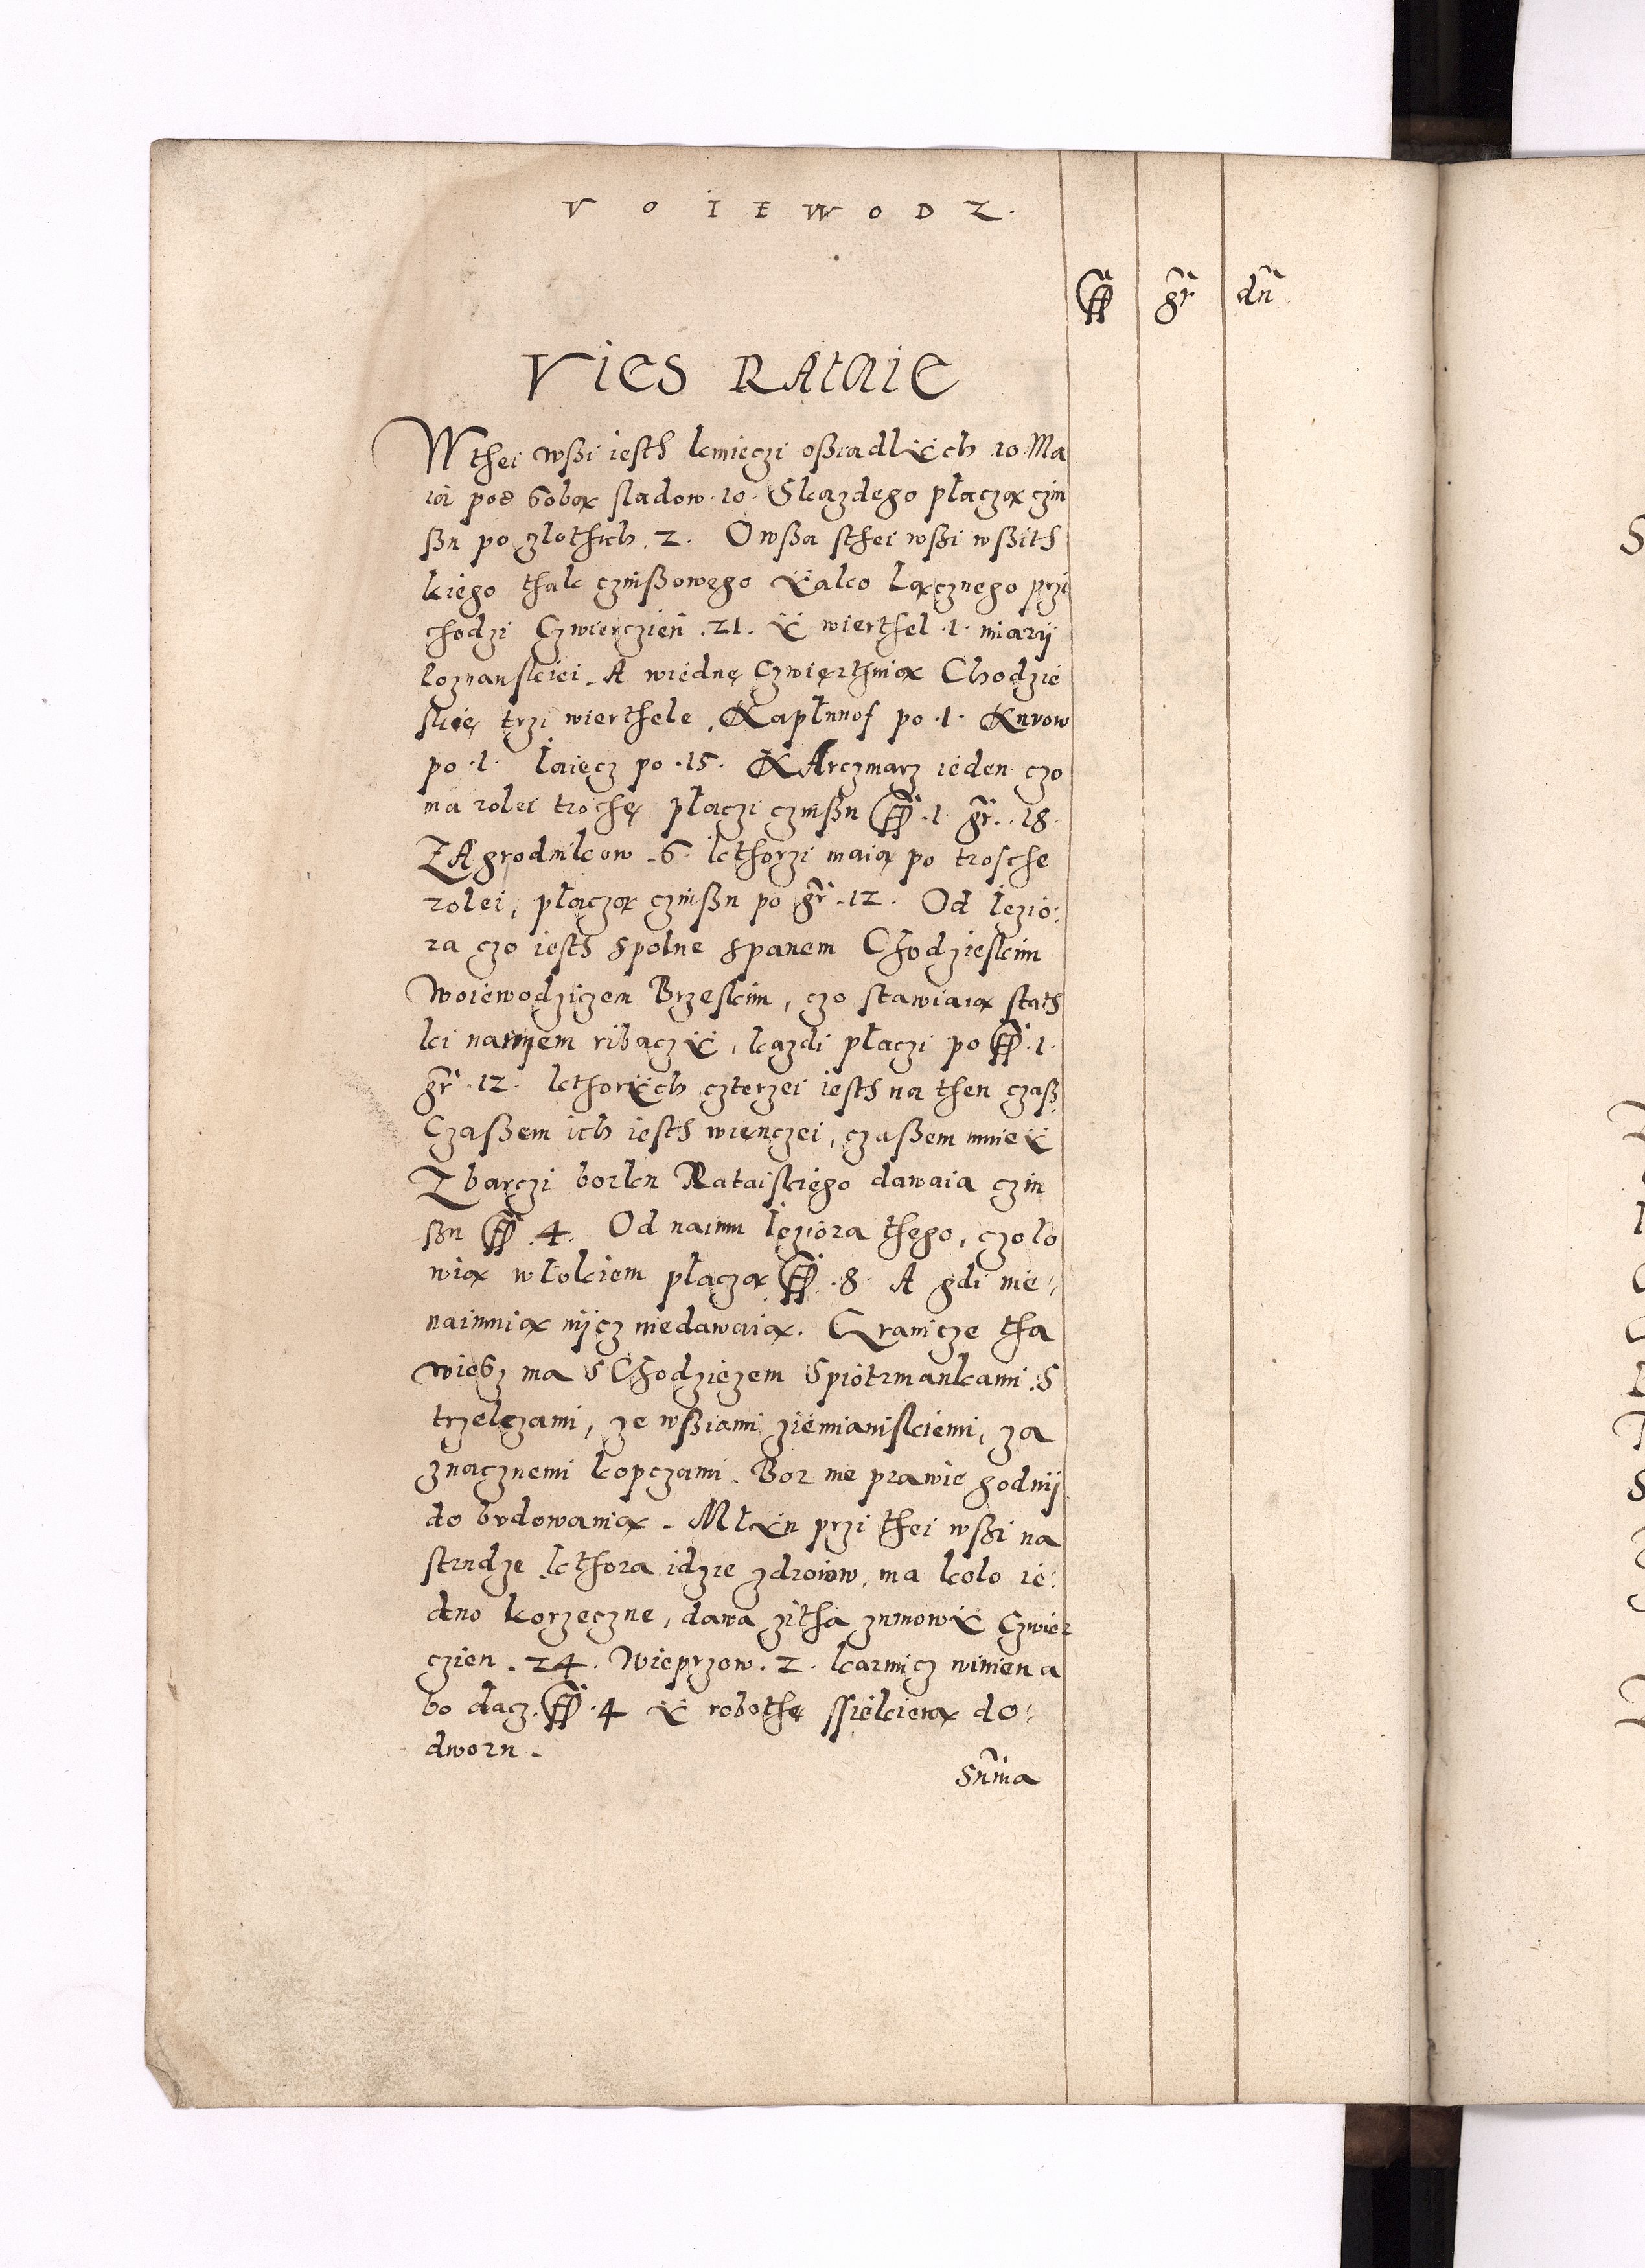 VOIEWODZ.
fl gr dn
VIES RATAIE
W thei wßi iesth kmieczi oßiadlÿch 10 Ma
ią pod sobą sladow .10. S kazdego płaczą czin
ßu po zlothich .2. Owßa sthei wßi wßith
kiego thak czinßowego ÿako łącznego przi
chodzi Czwierczien .21. ÿ wierthel .1. miarÿ
poznanskiei. A wiednę Czwierthnią Chodzie
skię trzi wierthele. Kapłunof po .1. Kurow
po .1. Iaiecz po .15. KArczmarz ieden czo
ma rolei trochę płaczi czinßu fl .1. gr .18.
ZAgrodnikow .6. kthorzi maią po trosche
rolei, płaczą czinßu po gr .12. Od Iezio:
ra czo iesth spolne spanem Chodzieskim
Woiewodziczem Brzeskim, czo stawiaią stath
ki naniem ribaczÿ, kazdi płaczi po fl .1.
gr .12. kthorÿch czterzei iesth na then czaß
Czaßem ich iesth wienczei, czaßem mnieÿ
Z barczi borku Rataiskiego dawaia czin
ßu fl .4. Od naimu Ieziora thego, czo ło
wią włokiem płaczą fl .8. A gdi nie:
naimuią nÿcz niedawaią. Granicze tha
wiesz ma s Chodziezem Spiotrmankami .S
trzelczami, ze wßiami ziemianiskiemi, za
znacznemi kopczami. Bor nie prawie godnÿ
do budowania. Młÿn przi thei wßi na
strudze kthora idzie zdroiow, ma kolo ie:
dno korzeczne, dawa zitha zumowÿ Czwier
czien .24. Wieprzow .2. karmicz winien a
bo dacz fl .4 ÿ robothę ssiekierą do:
dworu.
Suma